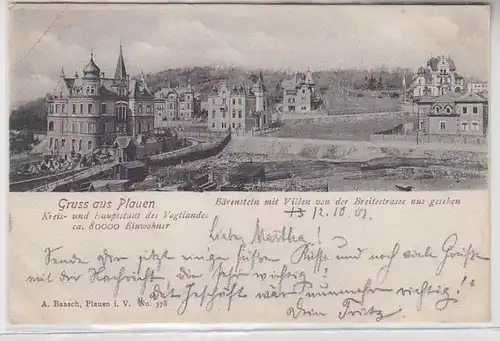 Gruss aus Plauen
Kreis- und Hauptstadt des Vogtlandes
ca. 80000 Einwohner
Bärenstein mit Villen von der Breitestrasse aus gesehen
13 12.10.01.
Liebe Martha!
Sende Dir jetzt einige süße Küsse und noch viele Grüße
mit der Nachricht, die sehr wichtig:
das Geschäft wär nunmehr richtig!"
Dein Fritz
A. Bansch, Plauen i. V. No. 378